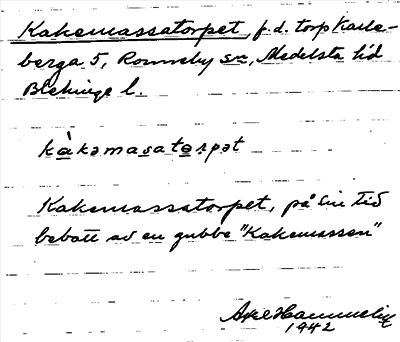 Kakemassatorpet, f.d. torp Karle-
berga 5, Ronneby sn, Medelsta hd
Blekinge l.
kàkəmasatorpət
Kakemassatorpet, på sin tid
bebott av en gubbe "Kakemassen"
Axel Hammelin
1942